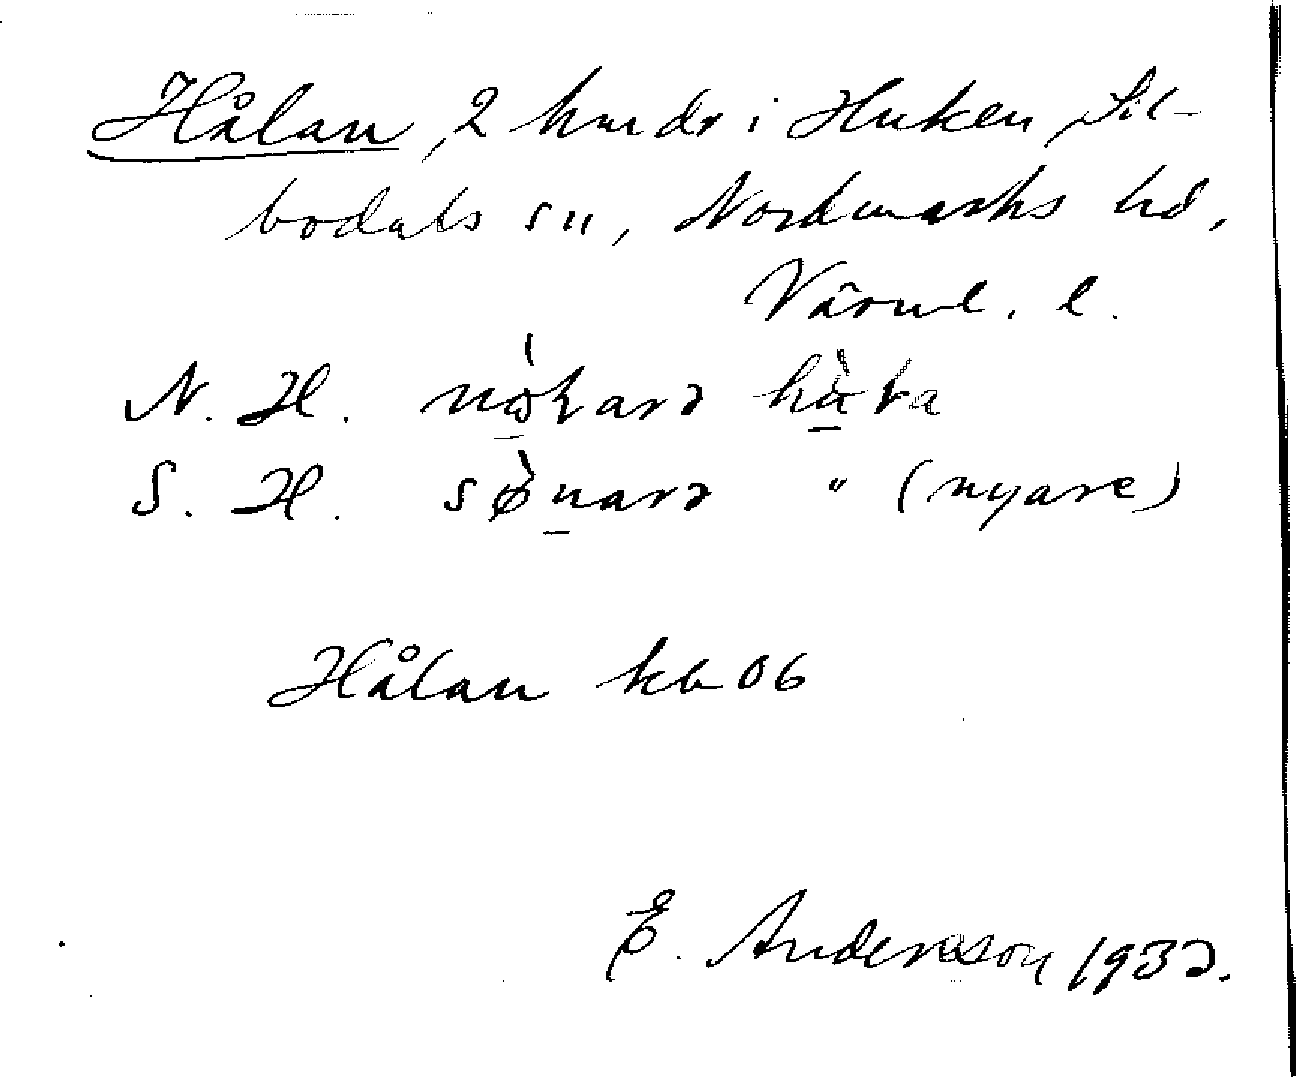 Hålan, 2 hmdr i Huken, Sil-
bodals sn, Nordmarks hd,
Värml. l.
N. H.
S. H. " (nyare)
Hålan kb 06
E. Andersson 1932.